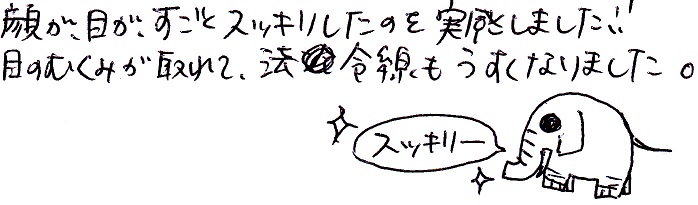 顔が、目が、すごくスッキリしたのを実感しました!!
目のむくみが取れて、法令線もうすくなりました。
スッキリー